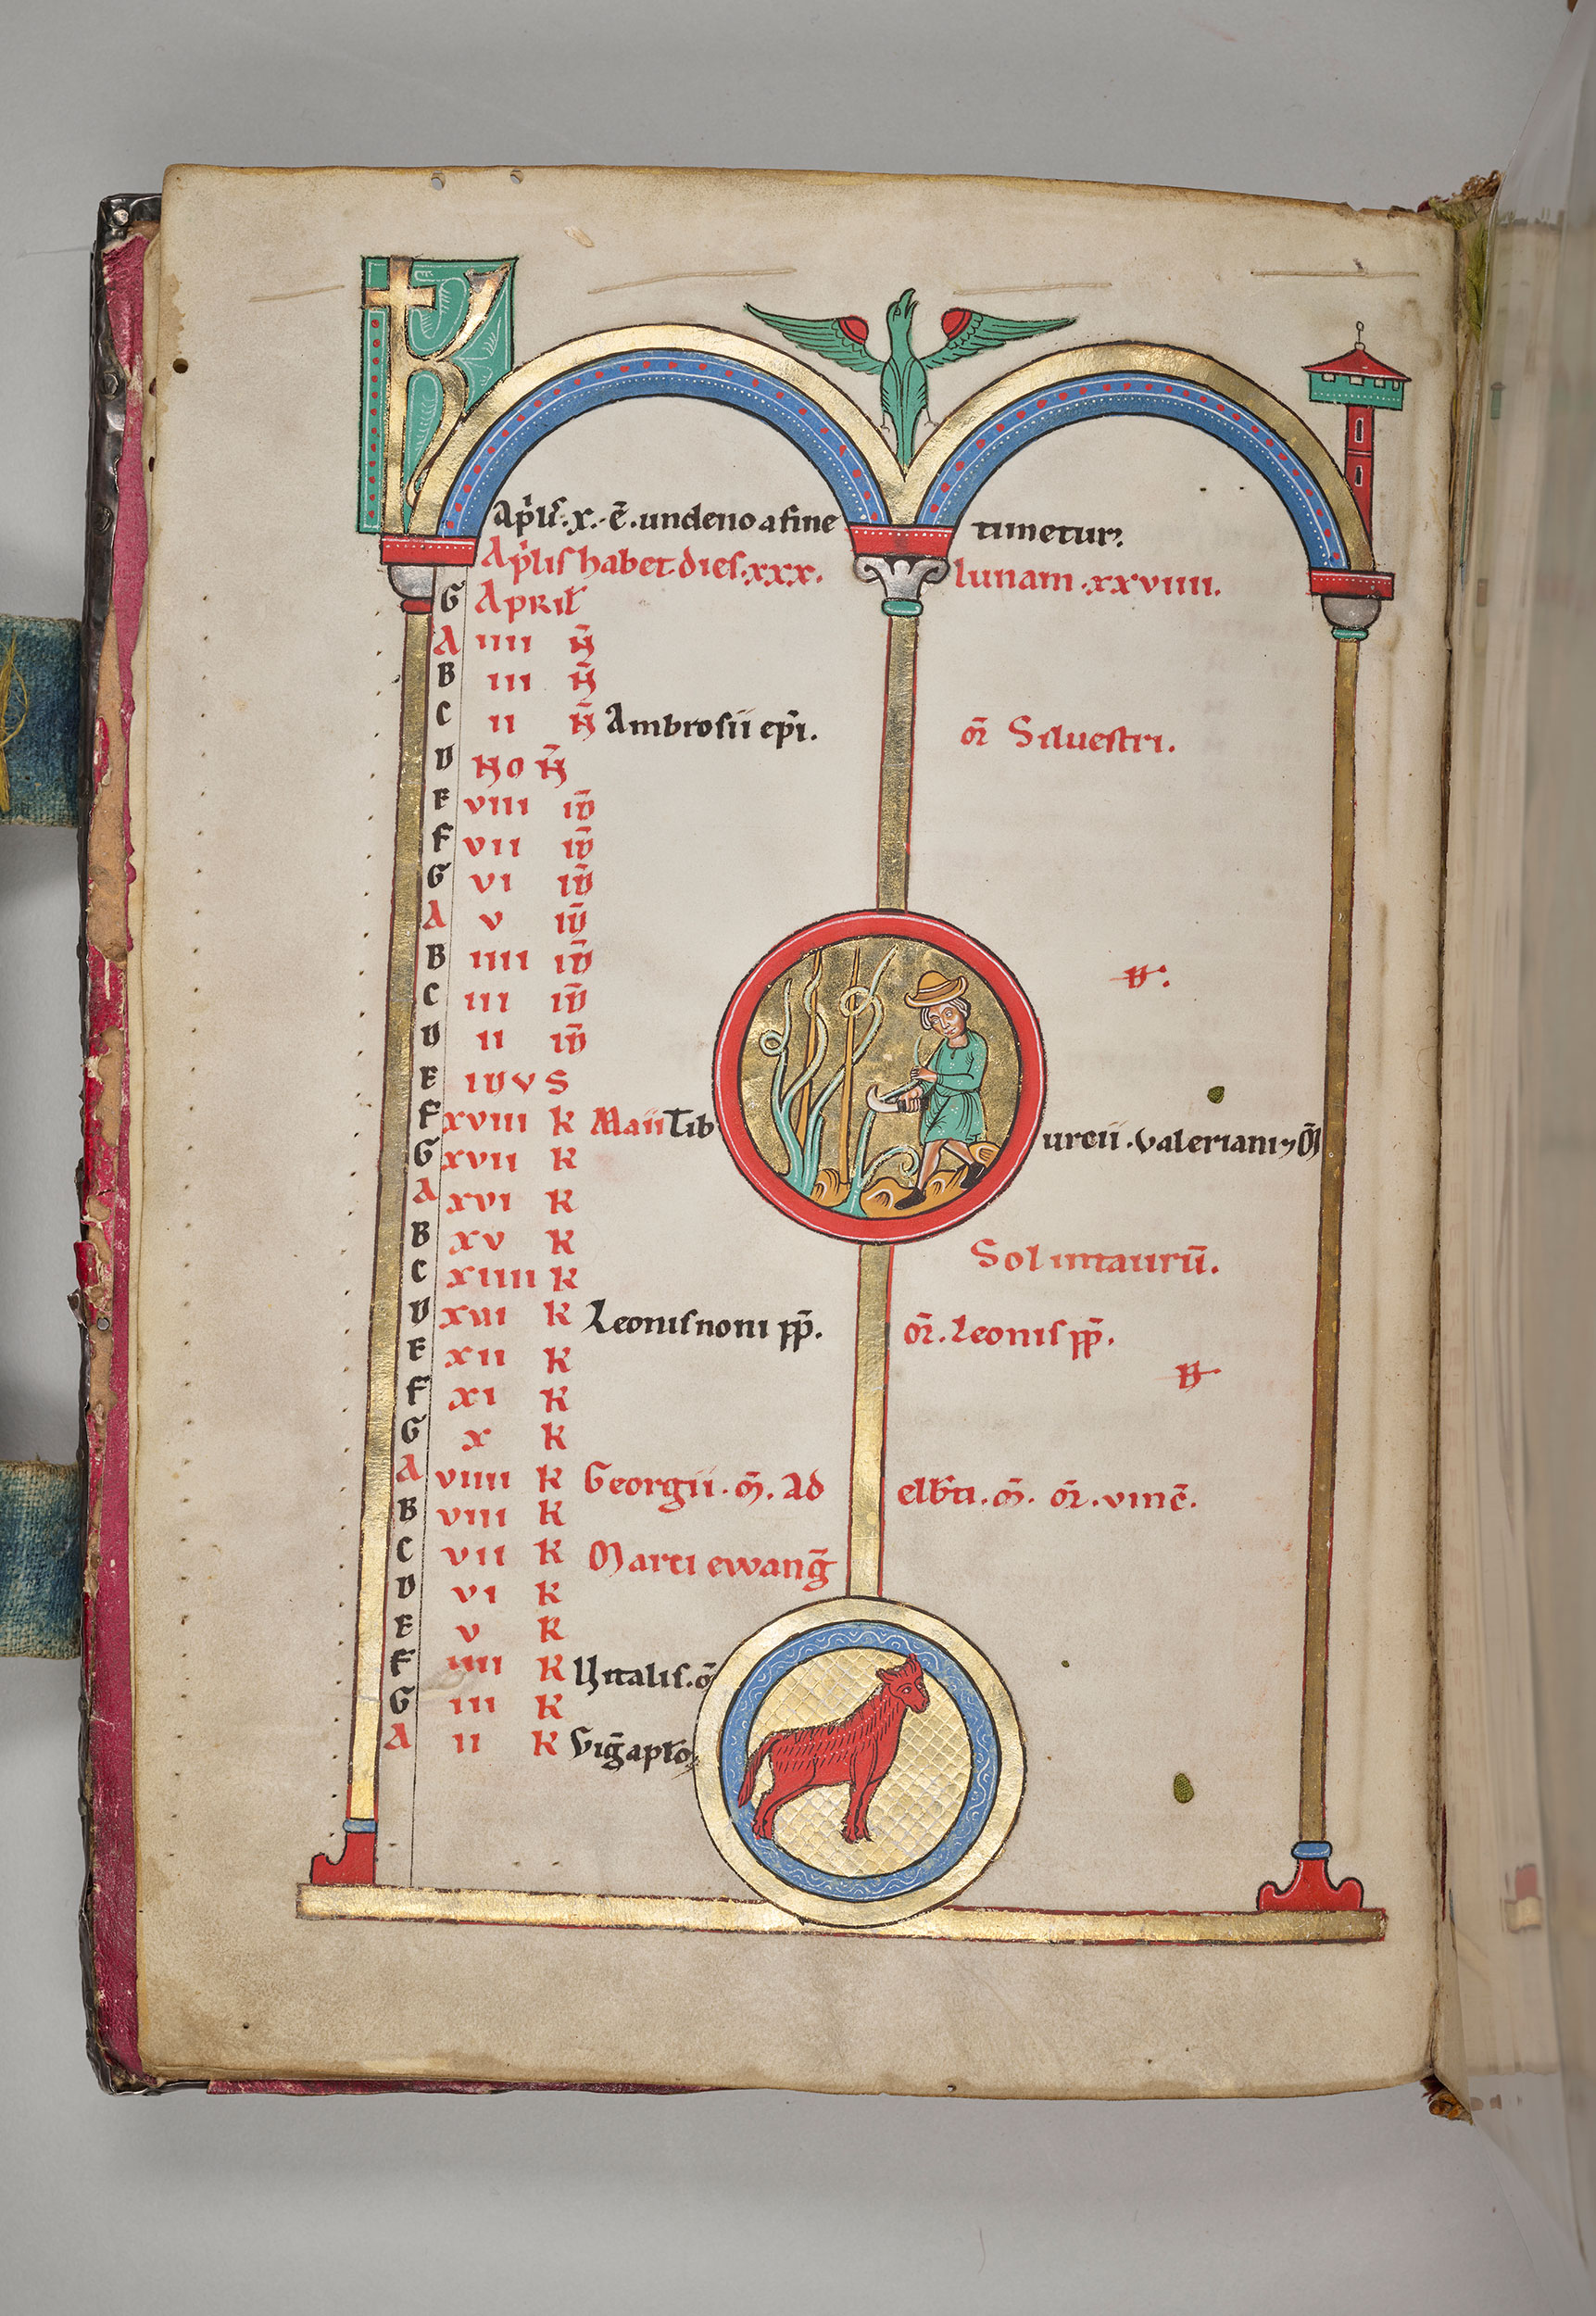 KL
Ap̄lis .x. ē. undeno a fine timetur.
Ap̄lis habet dies .xxx. lunam .xxviiii.
G April
A iiii N̄
B iii N̄
C ii N̄ Ambrosii ep̄i. or̄ Siluestri.
D NO N̄
E viii iD̄
F vii iD̄
G vi iD̄
A v iD̄
B iiii iD̄
C iii iD̄
D ii iD̄
E iDvS
F xviii K Maii Tiburcii . Valeriani ⁊ M̄
G xvii K
A xvi K
B xv K
C xiiii K Sol in taurū.
D xiii K Leonis noni pp̄. or̄. Leonis pp̄.
E xii K
F xi K
G x K
A viiii K Georgii . m̄. Adelb̄ti . m̄. or̄. vincē.
B viii K
C vii K Marci ewanḡ
D vi K
E v K
F iiii K Vitalis . m̄
G iii K
A ii K Viḡ apło